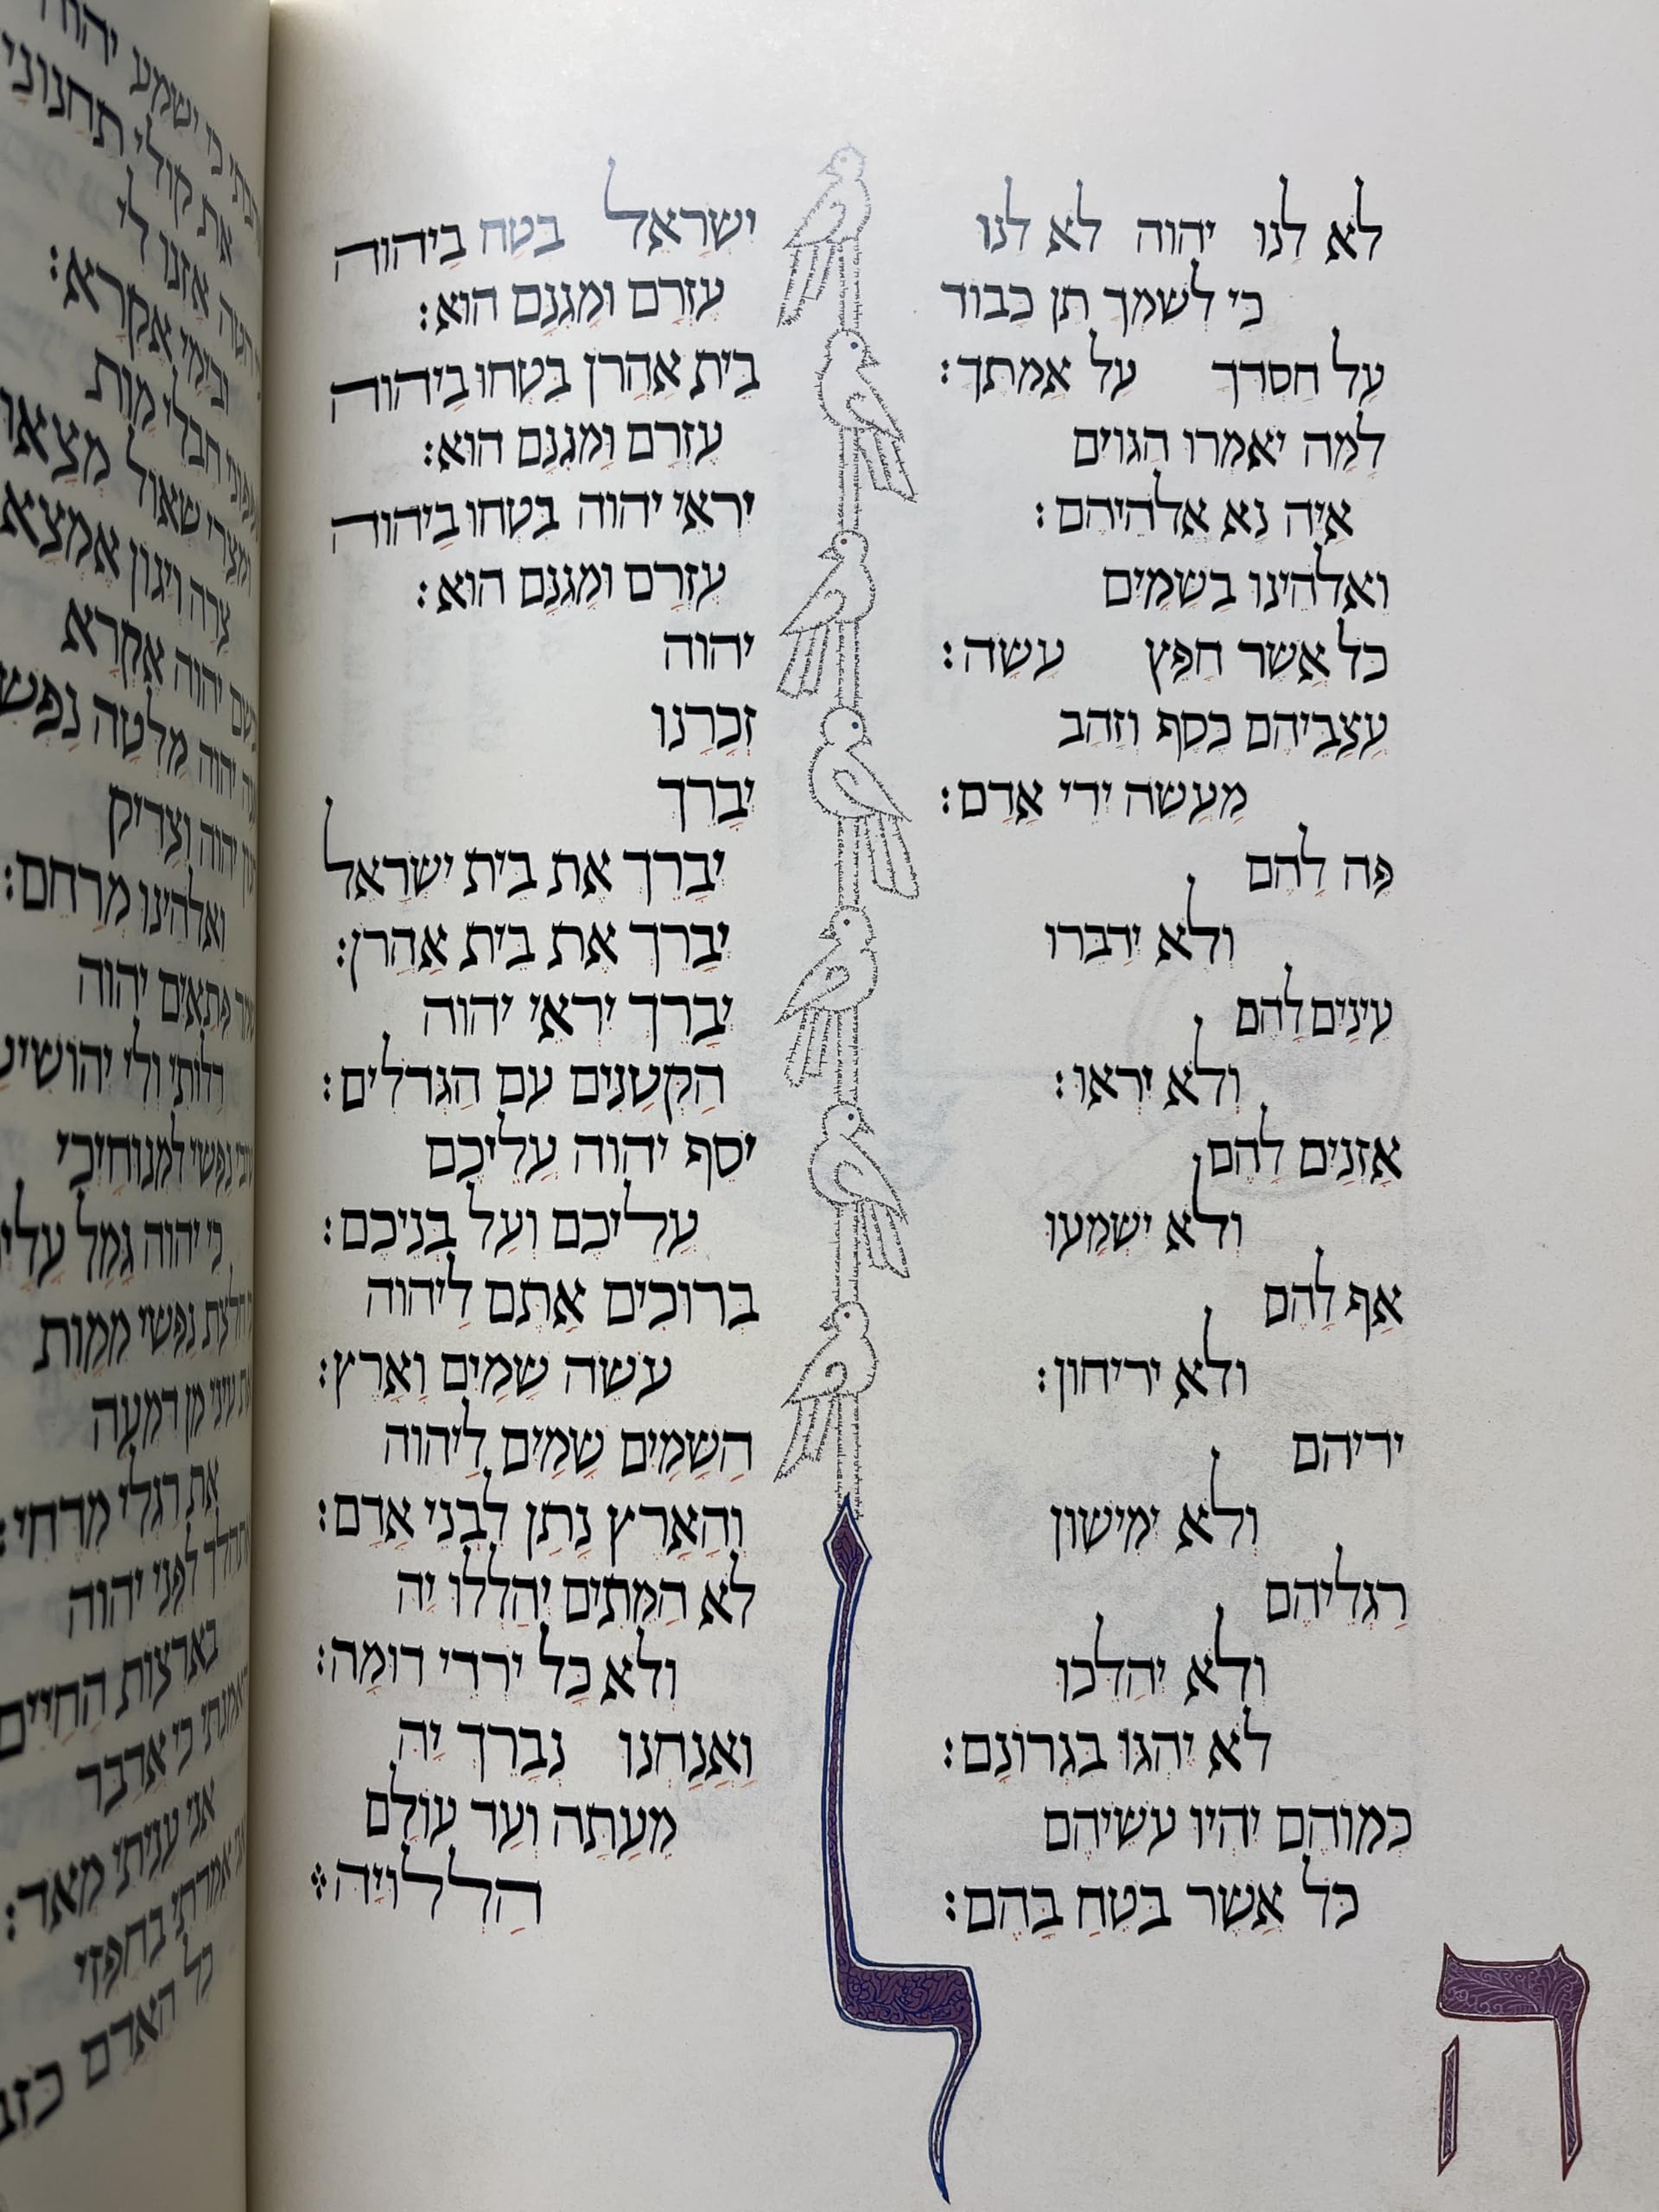 לא לנו יהוה לא לנו
כי לשמך תן כבוד
על חסדך על אמתך:
למה יאמרו הגוים
איה נא אלהיהם:
ואלהינו בשמים
כל אשר חפץ עשה:
עצביהם כסף וזהב
מעשה ידי אדם:
פה להם
ולא ידברו
עינים להם
ולא יראו:
אזנים להם
ולא ישמעו
אף להם
ולא יריחון:
ידיהם
ולא ימישון
רגליהם
ולא יהלכו
לא יהגו בגרונם:
כמוהם יהיו עשיהם
כל אשר בטח בהם:
ישראל בטח ביהוה
עזרם ומגנם הוא:
בית אהרן בטחו ביהוה
עזרם ומגנם הוא:
יראי יהוה בטחו ביהוה
עזרם ומגנם הוא:
יהוה
זכרנו
יברך
יברך את בית ישראל
יברך את בית אהרן:
יברך יראי יהוה
הקטנים עם הגדלים:
יסף יהוה עליכם
עליכם ועל בניכם:
ברוכים אתם ליהוה
עשה שמים וארץ:
השמים שמים ליהוה
והארץ נתן לבני אדם:
לא המתים יהללו יה
ולא כל ירדי דומה:
ואנחנו נברך יה
מעתה ועד עולם
הללויה:
ה
ל
כי ישמע
את קולי תחנוני
אזנו לי
ובימי אקרא:
חבלי מות
ומצרי שאול
צרה ויגון אמצא
יהוה אקרא
יהוה מלטה נפשי
יהוה וצדיק
ואלהינו מרחם:
פתאים יהוה
דלותי ולי
נפשי למנוחיכי
כי יהוה גמל
נפשי ממות
עיני מן דמעה
את רגלי מדחי:
לפני יהוה
בארצות החיים
כי אדבר
אני עניתי מאד:
אמרתי בחפזי
כל האדם